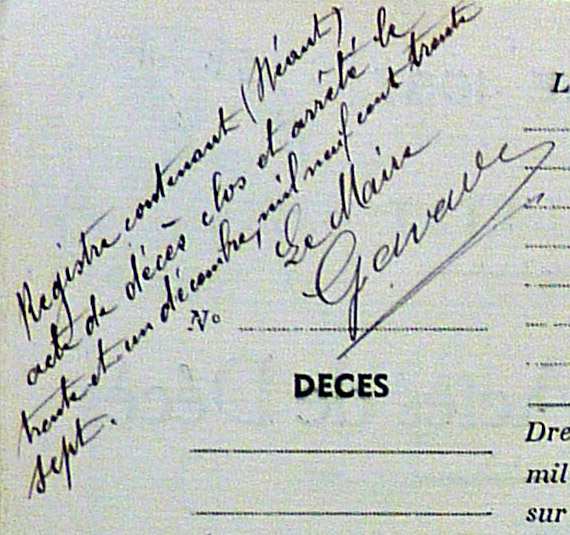 Registre contenant (Néant)
acte de décès clos et arrêté le
trente et un décembre, mil neuf cent trente
sept.
Le Maire
L
No
DECES
Dre
mil
sur